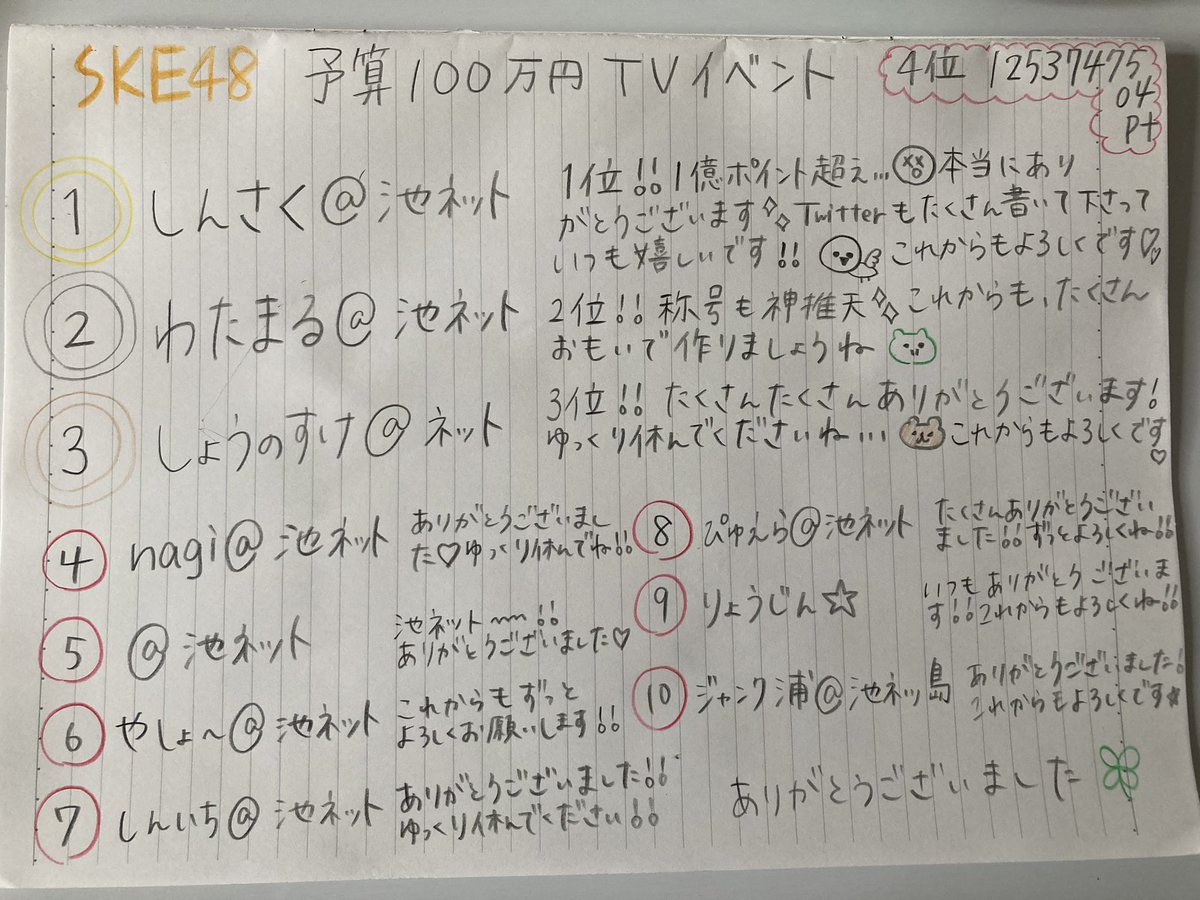 SKE48 予算100万円TVイベント
4位 12537475
04
Pt
1 しんさく@池ネット
1位!!1億ポイント超え…本当にあり
がとうございますTwitterもたくさん書いて下さって
いつも嬉しいです!!これからもよろしくです♡
2 わたまる@池ネット
2位!!称号も神推天これからも、たくさん
おもいで作りましょうね
3 しょうのすけ@ネット
3位!!たくさんたくさんありがとうございます!
ゆっくり休んでくださいね…これからもよろしくです
♡
4 nagi@池ネット
ありがとうございまし
た♡ゆっくり休んでね!!
5 @池ネット
池ネット〜〜!!
ありがとうございました♡
6 やしょ〜@池ネット
これからもずっと
よろしくお願いします!!
7 しんいち@池ネット
ありがとうございました!!
ゆっくり休んでください!!
8 ぴゅえら@池ネット
たくさんありがとうござい
ました!!ずっとよろしくね!!
9 りょうじん☆
いつもありがとうございま
す!!これからもよろしくね!!
10 ジャンク浦@池ネッ島
ありがとうございました!
これからもよろしくです★
ありがとうございました